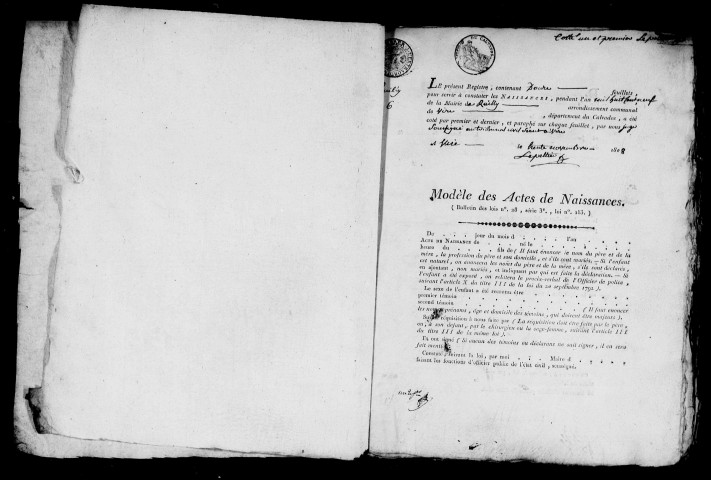 Cotté un et premier
LE présent Registre, contenant Douze feuillets,
pour servir à constater les NAISSANCES, pendant l'an mil huit cent neuf
de la Mairie de Reilly arrondissement communal
de Vire , département du Calvados, a été
coté par premier et dernier, et paraphé sur chaque feuillet, par nous juge
soussigné au tribunal civil
A Vire le trente novembre 1808
Lepelletier
Modèle des Actes de Naissances.
( Bulletin des lois n°. 28, série 3e., loi n°. 253. )
Du . . . jour du mois d . . . . l'an . . . .
ACTE DE NAISSANCE de . . . né le . . . .
heure du . . . fils de ( Il faut énoncer le nom du père et de la
mère, la profession du père et son domicile, et s'ils sont mariés. — Si l'enfant
est naturel, on énoncera les noms du père et de la mère, s'ils sont déclarés,
en ajoutant, non mariés, et indiquant par qui est faite la déclaration. — Si
l'enfant a été exposé, on relatera le procès-verbal de l'Officier de police,
suivant l'article X du titre III de la loi du 20 septembre 1792. )
Le sexe de l'enfant a été reconnu être . . . .
premier témoin . . . .
second témoin . . . . ( Il faut énoncer
les noms, prénoms, âge et domicile des témoins, qui doivent être majeurs )
Sur la réquisition à nous faite par ( La réquisition doit être faite par le père,
ou, à son défaut, par le chirurgien ou la sage-femme, suivant l'article III
du titre III de la même loi ).
Et ont signé ( Si aucun des témoins ou déclarans ne sait signer, il en sera
fait mention ).
Constaté, suivant la loi, par moi . . . Maire d . . . .
faisant les fonctions d'officier public de l'état civil, soussigné.